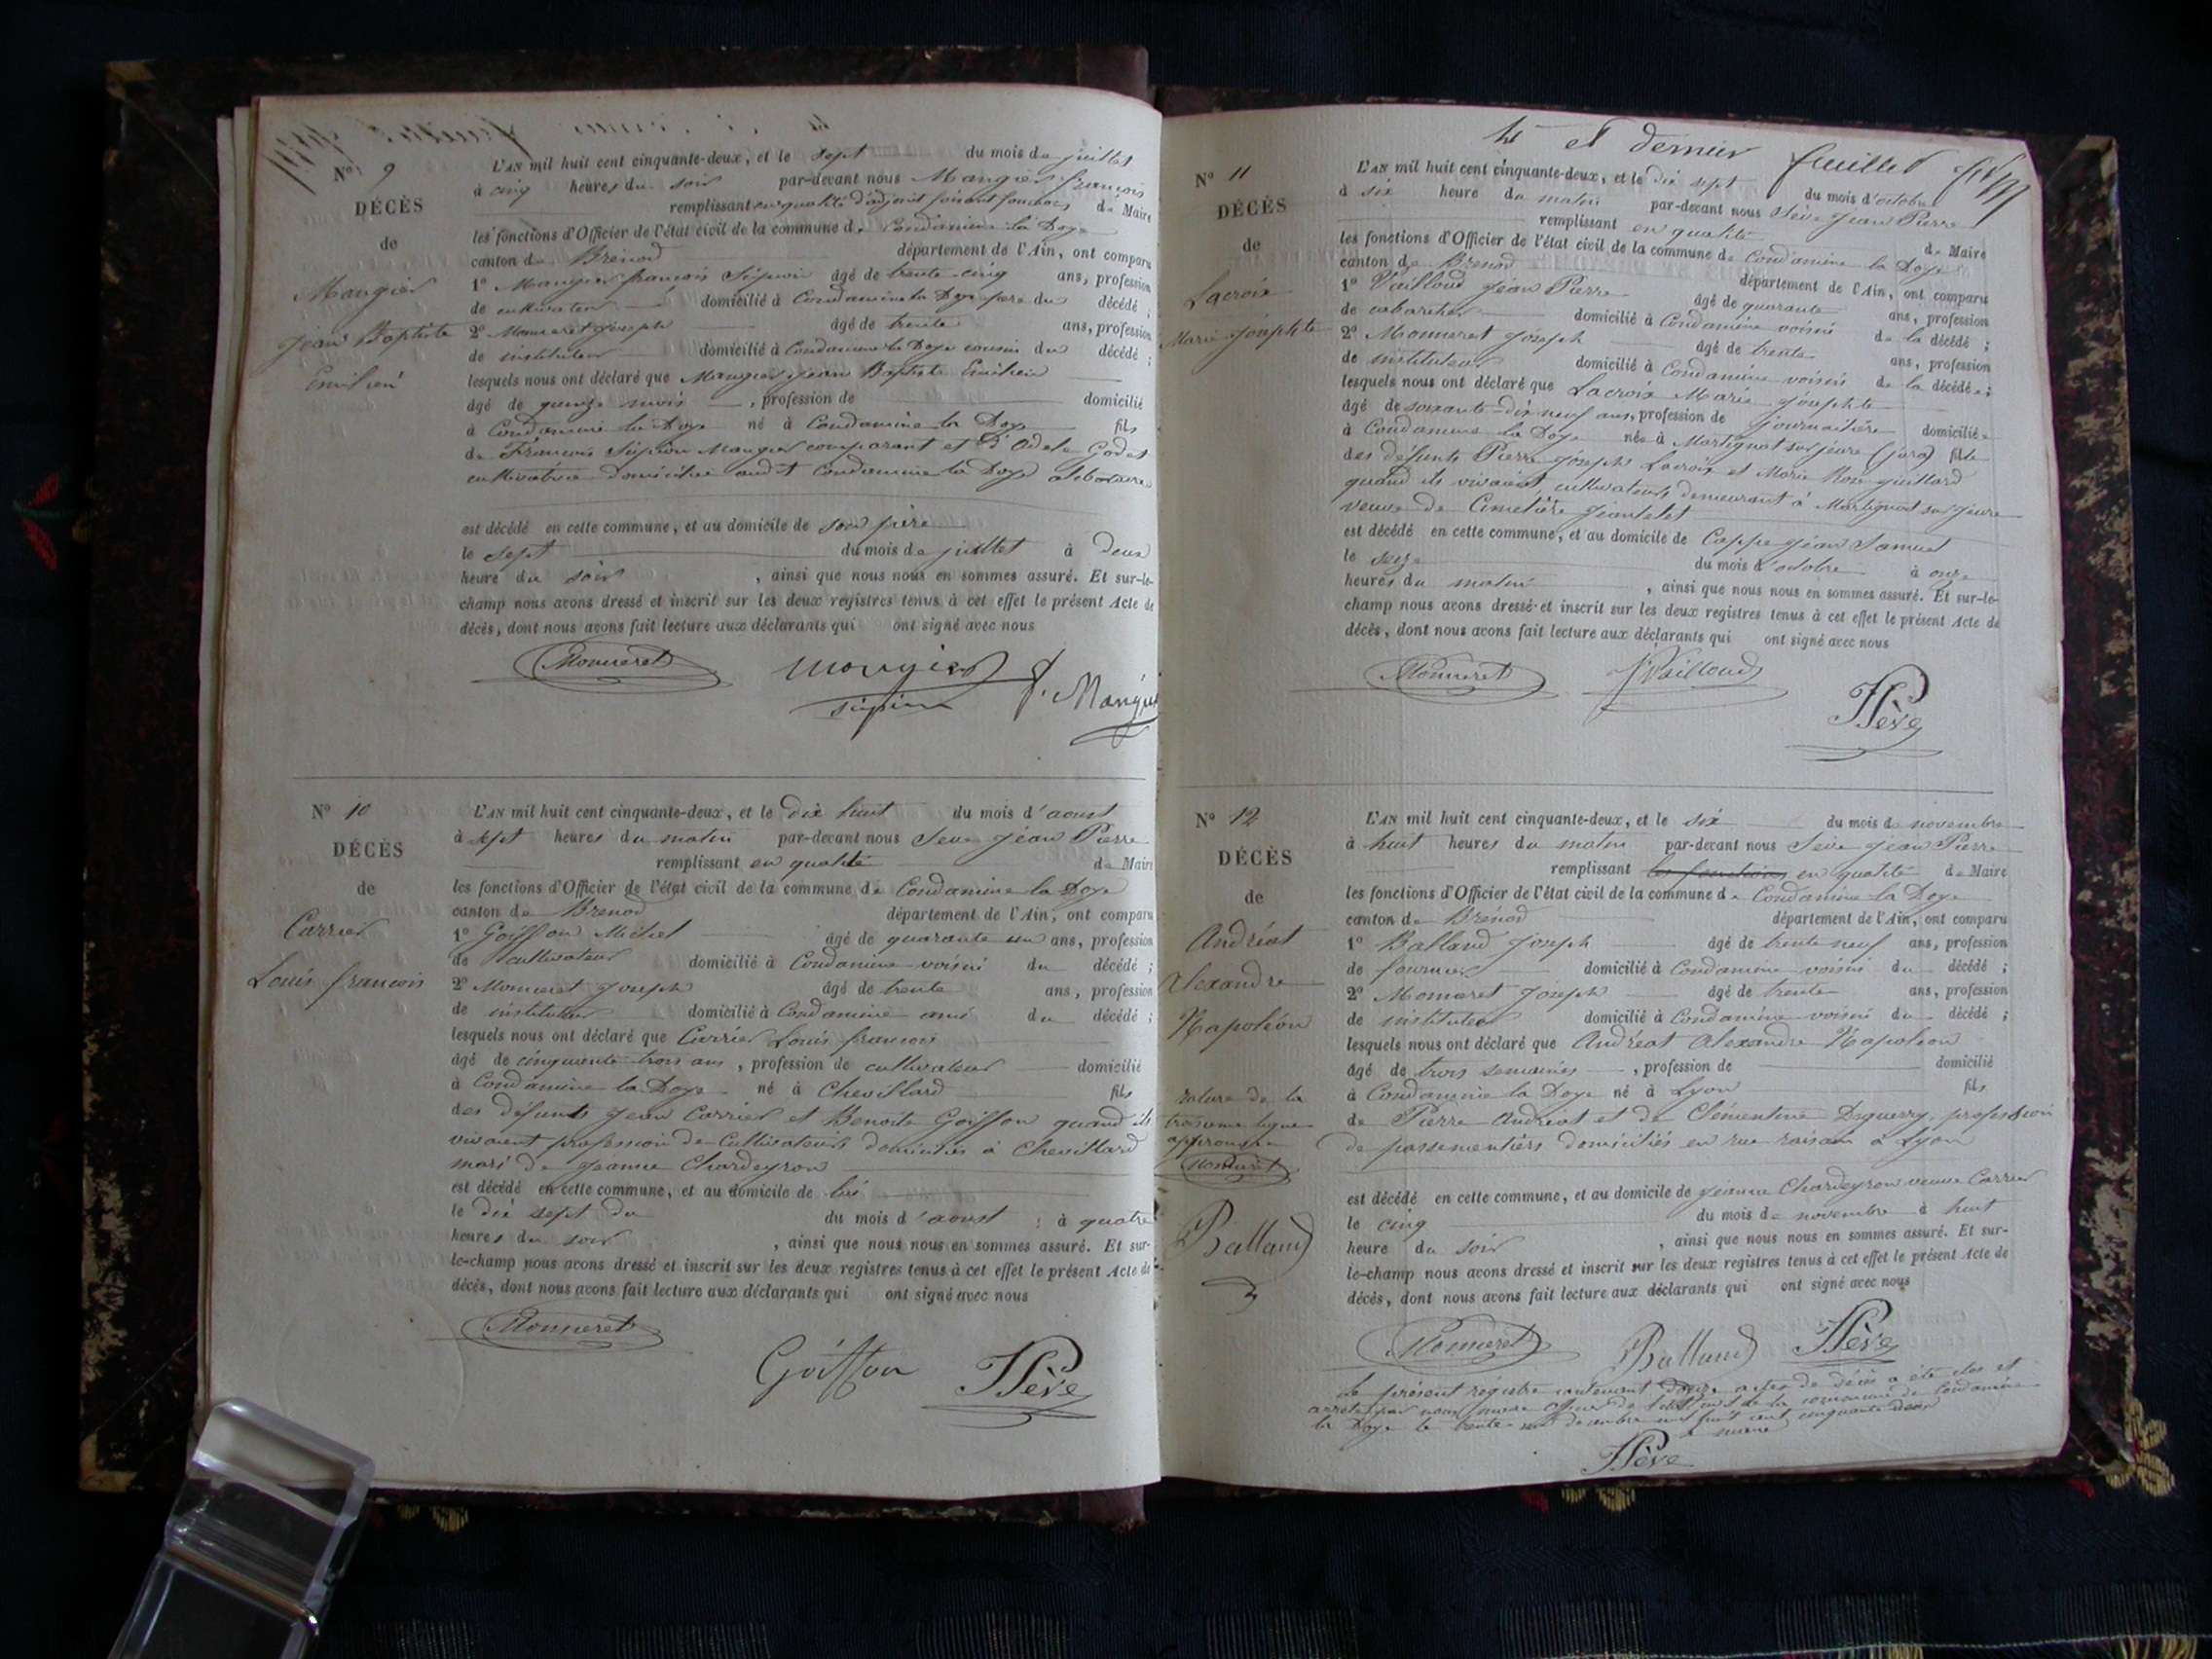 N° 9
DÉCÈS
de
Mangier
Jean Baptiste
Emilien
L'AN mil huit cent cinquante-deux, et le sept du mois de juillet
à cinq heures du soir par-devant nous Mangier françois
remplissant en qualité d'adjoint faisant fonctions de Maire
les fonctions d'Officier de l'état civil de la commune de Condamine la Doye
canton de Brenod département de l'Ain, ont comparu
1° Mangier françois âgé de trente-cinq ans, profession
de cultivateur domicilié à Condamine la Doye père du décédé ;
2° Monneret Joseph âgé de trente ans, profession
de instituteur domicilié à Condamine la Doye cousin du décédé ;
lesquels nous ont déclaré que Mangier Jean Baptiste Emilien
âgé de quinze mois , profession de domicilié
à Condamine la Doye né à Condamine la Doye fils
de François Mangier comparant et d'Odele Godet
cultivatrice domiciliée audit Condamine la Doye
est décédé en cette commune, et au domicile de son père
le sept du mois de juillet à deux
heure du soir , ainsi que nous nous en sommes assuré. Et sur-le-
champ nous avons dressé et inscrit sur les deux registres tenus à cet effet le présent Acte de
décès, dont nous avons fait lecture aux déclarants qui ont signé avec nous
Monneret Mangier f. Mangier
N° 10
DÉCÈS
de
Carrier
Louis françois
L'AN mil huit cent cinquante-deux, et le dix huit du mois d'aoust
à sept heures du matin par-devant nous Seve Jean Pierre
remplissant en qualité de Maire
les fonctions d'Officier de l'état civil de la commune de Condamine la Doye
canton de Brenod département de l'Ain, ont comparu
1° Goiffon Michel âgé de quarante un ans, profession
de cultivateur domicilié à Condamine voisin du décédé ;
2° Monneret Joseph âgé de trente ans, profession
de instituteur domicilié à Condamine ami du décédé ;
lesquels nous ont déclaré que Carrier Louis françois
âgé de cinquante trois ans , profession de cultivateur domicilié
à Condamine la Doye né à Chevillard fils
des défunts Jean Carrier et Benoite Goiffon quand ils
vivaient profession de Cultivateurs domiciliés à Chevillard
mari de Jeanne Chardeyron
est décédé en cette commune, et au domicile de lui
le dix sept du du mois d'aoust à quatre
heures du soir , ainsi que nous nous en sommes assuré. Et sur-
le-champ nous avons dressé et inscrit sur les deux registres tenus à cet effet le présent Acte de
décès, dont nous avons fait lecture aux déclarants qui ont signé avec nous
Monneret
Goiffon Sève
4e et dernier feuillet
N° 11
DÉCÈS
de
Lacroix
Marie Josephte
L'AN mil huit cent cinquante-deux, et le dix sept du mois d'octobre
à six heure du matin par-devant nous Sève Jean Pierre
remplissant en qualité de Maire
les fonctions d'Officier de l'état civil de la commune de Condamine la Doye
canton de Brenod département de l'Ain, ont comparu
1° Vailloud Jean Pierre âgé de quarante ans, profession
de cabaretier domicilié à Condamine voisin de la décédé ;
2° Monneret Joseph âgé de trente ans, profession
de instituteur domicilié à Condamine voisin de la décédée ;
lesquels nous ont déclaré que Lacroix Marie Josephte
âgé de soixante-dix neuf ans, profession de journalière domicilié
à Condamine la Doye née à Martignat (jura) fille
des défunts Pierre Joseph Lacroix et Marie
quand ils vivaient cultivateurs demeurant à Martignat
veuve de Cimetière
est décédé en cette commune, et au domicile de Cappe Jean Samuel
le seize du mois d'octobre à onze
heures du matin , ainsi que nous nous en sommes assuré. Et sur-le-
champ nous avons dressé et inscrit sur les deux registres tenus à cet effet le présent Acte de
décès, dont nous avons fait lecture aux déclarants qui ont signé avec nous
Monneret Vailloud
Sève
N° 12
DÉCÈS
de
Andréat
Alexandre
Napoléon
rature de la
troisieme ligne
approuvée
Monneret
Balland
L'AN mil huit cent cinquante-deux, et le six du mois de novembre
à huit heures du matin par-devant nous Seve Jean Pierre
remplissant les fonctions en qualité de Maire
les fonctions d'Officier de l'état civil de la commune de Condamine la Doye
canton de Brénod département de l'Ain, ont comparu
1° Balland Joseph âgé de trente neuf ans, profession
de domicilié à Condamine voisin du décédé ;
2° Monneret Joseph âgé de trente ans, profession
de instituteur domicilié à Condamine voisin du décédé ;
lesquels nous ont déclaré que Andréat Alexandre Napoléon
âgé de trois semaines , profession de domicilié
à Condamine la Doye né à Lyon fils
de Pierre Andréat et de Clémentine Deguerry, profession
de passementiers domiciliés en rue à Lyon
est décédé en cette commune, et au domicile de Jeanne Chardeyron veuve Carrier
le cinq du mois de novembre à huit
heure du soir , ainsi que nous nous en sommes assuré. Et sur-
le-champ nous avons dressé et inscrit sur les deux registres tenus à cet effet le présent Acte de
décès, dont nous avons fait lecture aux déclarants qui ont signé avec nous
Monneret Balland Sève
Le présent régistre contenant douze actes de décès a été clos et
arrêté par nous maire officier de l'état civil de la commune de Condamine
la Doye le trente un décembre mil huit cent cinquante deux
le maire
Sève